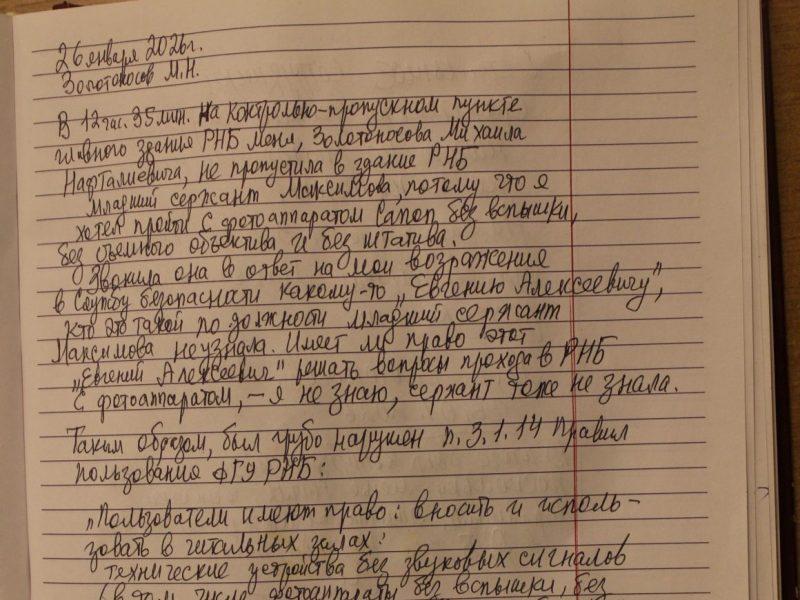 26 января 2026г.
Золотоносов М.Н.
В 12 час. 35 мин. на контрольно-пропускном пункте
главного здания РНБ меня, Золотоносова Михаила
Нафталиевича, не пропустила в здание РНБ
младший сержант Максимова, потому что я
хотел пройти с фотоаппаратом Canon без вспышки,
без съемного объектива и без штатива.
Звонила она в ответ на мои возражения
в Службу безопасности какому-то „Евгению Алексеевичу",
кто это такой по должности младший сержант
Максимова не узнала. Имеет ли право этот
„Евгений Алексеевич" решать вопросы прохода в РНБ
с фотоаппаратом, – я не знаю, сержант тоже не знала.
Таким образом, был грубо нарушен п. 3.1.14 Правил
пользования ФГУ РНБ:
„Пользователи имеют право: вносить и исполь-
зовать в читальных залах:
технические устройства без звуковых сигналов
(в том числе фотоаппараты без вспышки, без